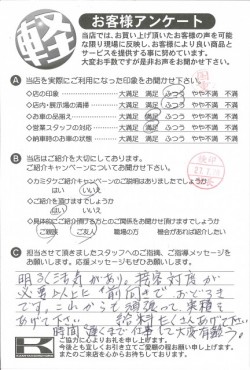 軽
お客様アンケート
当店では、お買い上げ頂いたお客様の声を可能
な限り現場に反映し、お客様により良い商品と
サービスを提供する事に努めています。
大変お手数ですが是非お声をお聞かせ下さい。
A 当店を実際にご利用になった印象をお聞かせ下さい。
◇店の印象 大満足 満足 ふつう やや不満 不満
◇店内・展示場の清掃 大満足 満足 ふつう やや不満 不満
◇お車の品揃え 大満足 満足 ふつう やや不満 不満
◇営業スタッフの対応 大満足 満足 ふつう やや不満 不満
◇納車時のお車の状態 大満足 満足 ふつう やや不満 不満
B 当店はご紹介を大切にしております。
ご紹介キャンペーンについてお聞かせ下さい。
◇カミタケご紹介キャンペーンのご説明はありましたでしょうか
はい いいえ
◇ご紹介を頂けますでしょうか
はい いいえ
◇具体的にご紹介頂ける方とのご関係をお聞かせ頂けますでしょうか
ご親族 ご友人 職場の方 機会があれば紹介したい
C 担当させて頂きましたスタッフへのご指摘、ご指導メッセージを
お願いします。応援メッセージもぜひお願いします。
明るく活気があり、接客対度が
必要以上と
です。これからも頑張って実積を
あげて下さい。給料もたくさんあげて下さい
時間遅くまで仕事して大変有難う。
ご協力に心よりお礼を申し上げます。
今後とも宜しくお引き立てご愛顧の程お願い申し上げます。
またのご来店を心からお待ちしております。